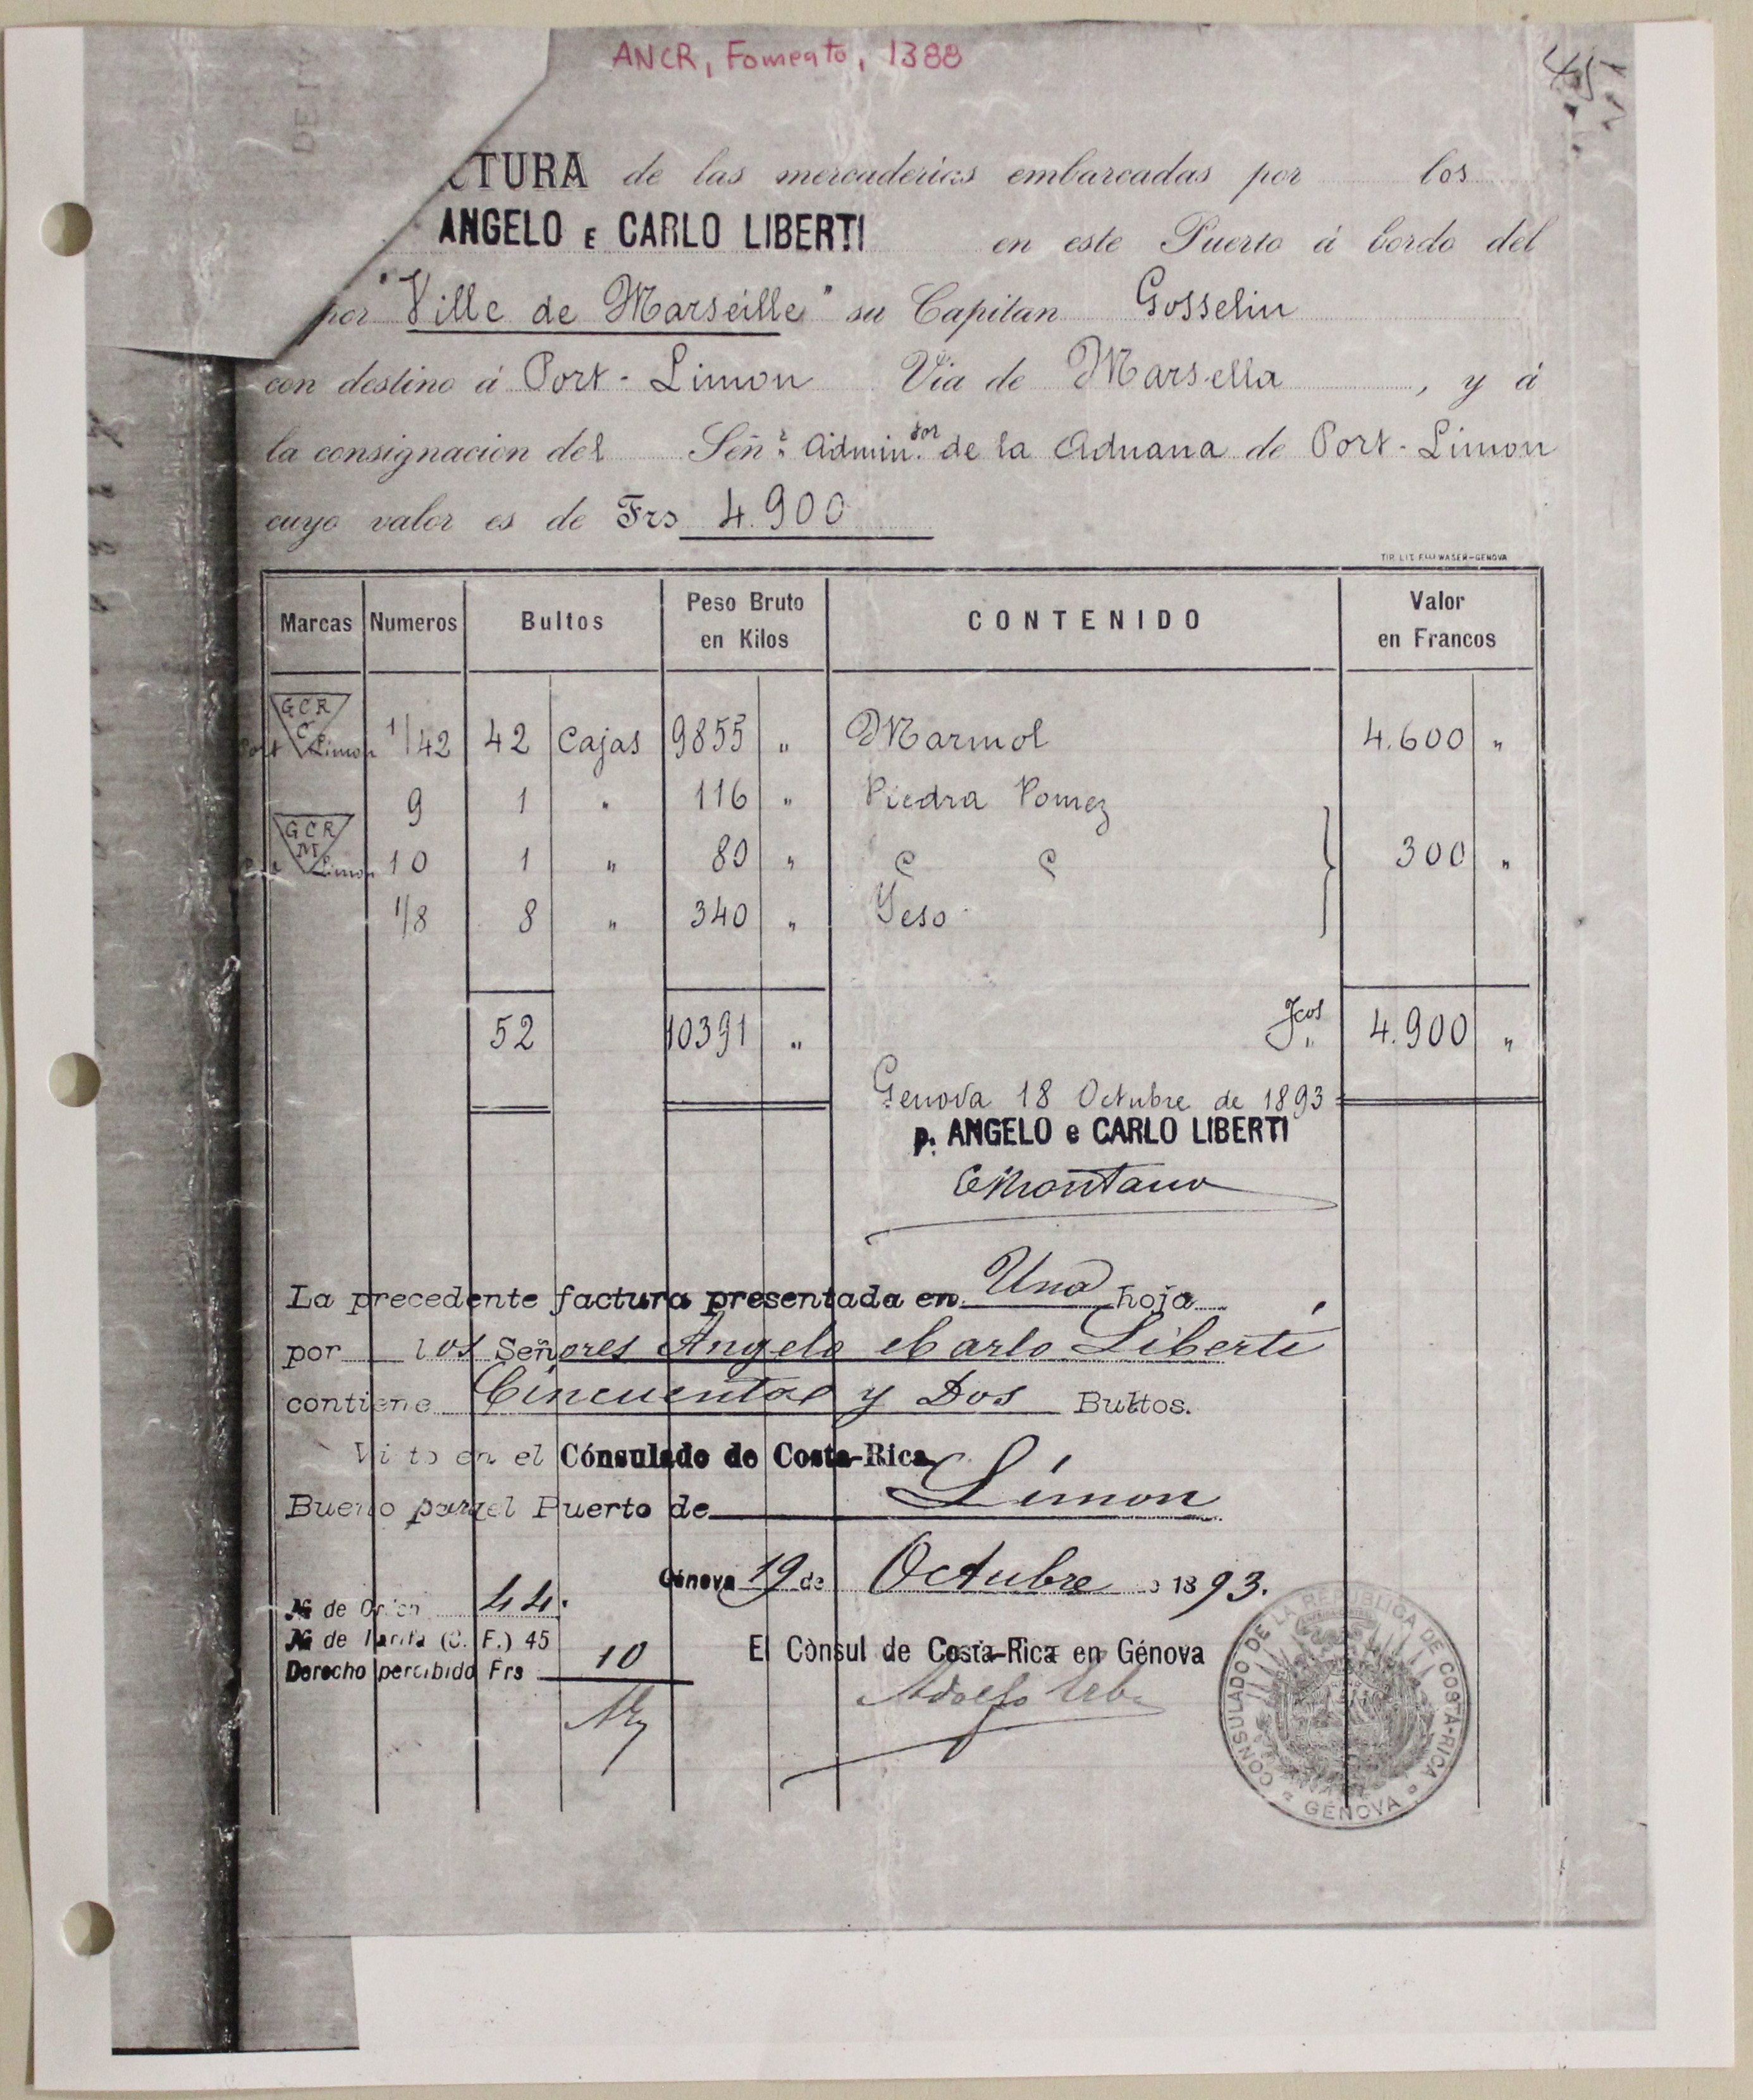 ANCR, Fomento, 1388
CTURA de las mercaderias embarcadas por los
ANGELO E CARLO LIBERTI en este Puerto á bordo del
por "Ville de Marseille" su Capitan Gosselin
con destino á Port-Limon Via de Marsella, y á
la consignacion del Señr. Admin.dor de la Aduana de Port-Limon
cuyo valor es de Frs 4.900
TIP. LIT. F.lli WASER-GENOVA
Marcas Numeros Bultos Peso Bruto en Kilos CONTENIDO Valor en Francos
GCR C Port Limon 1/42 42 Cajas 9855 " Marmol 4.600 "
9 1 " 116 " Piedra Pomez
GCR M Limon 10 1 " 80 " 300 "
1/8 8 " 340 " Yeso
52 10391 " Fcos 4.900 "
Genova 18 Octubre de 1893
p. ANGELO e CARLO LIBERTI
La precedente factura presentada en Una hoja
por los Señores Angelo e Carlo Liberti
contiene Cincuenta y Dos Bultos.
Visto en el Cónsulado de Costa-Rica
Bueno para el Puerto de Limon
Génova 19 de Octubre 1893.
No de Orden 44.
No de Tarifa (C. F.) 45
Derecho percibido Frs 10
El Cònsul de Costa-Rica en Génova
CONSULADO DE LA REPUBLICA DE COSTA-RICA
GÉNOVA